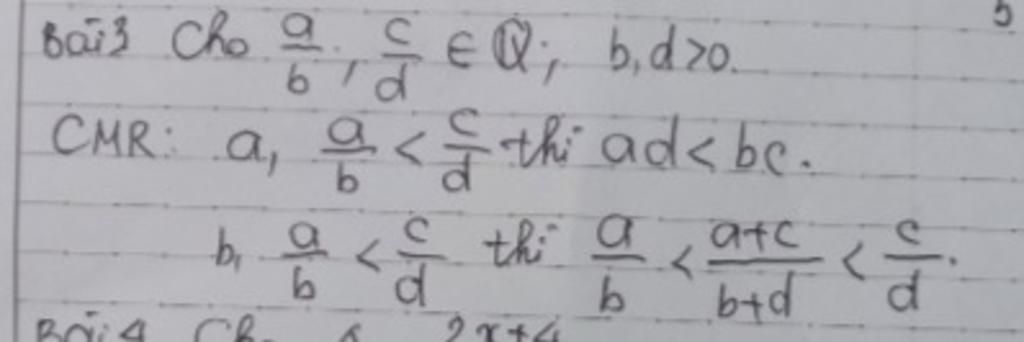 Bài 3 Cho a/b; c/d ∈ Q; b,d>0.
CMR: a, a/b < c/d thì ad < bc.
b, a/b < c/d thì a/b < (a+c)/(b+d) < c/d.
Bài 4 2x+4